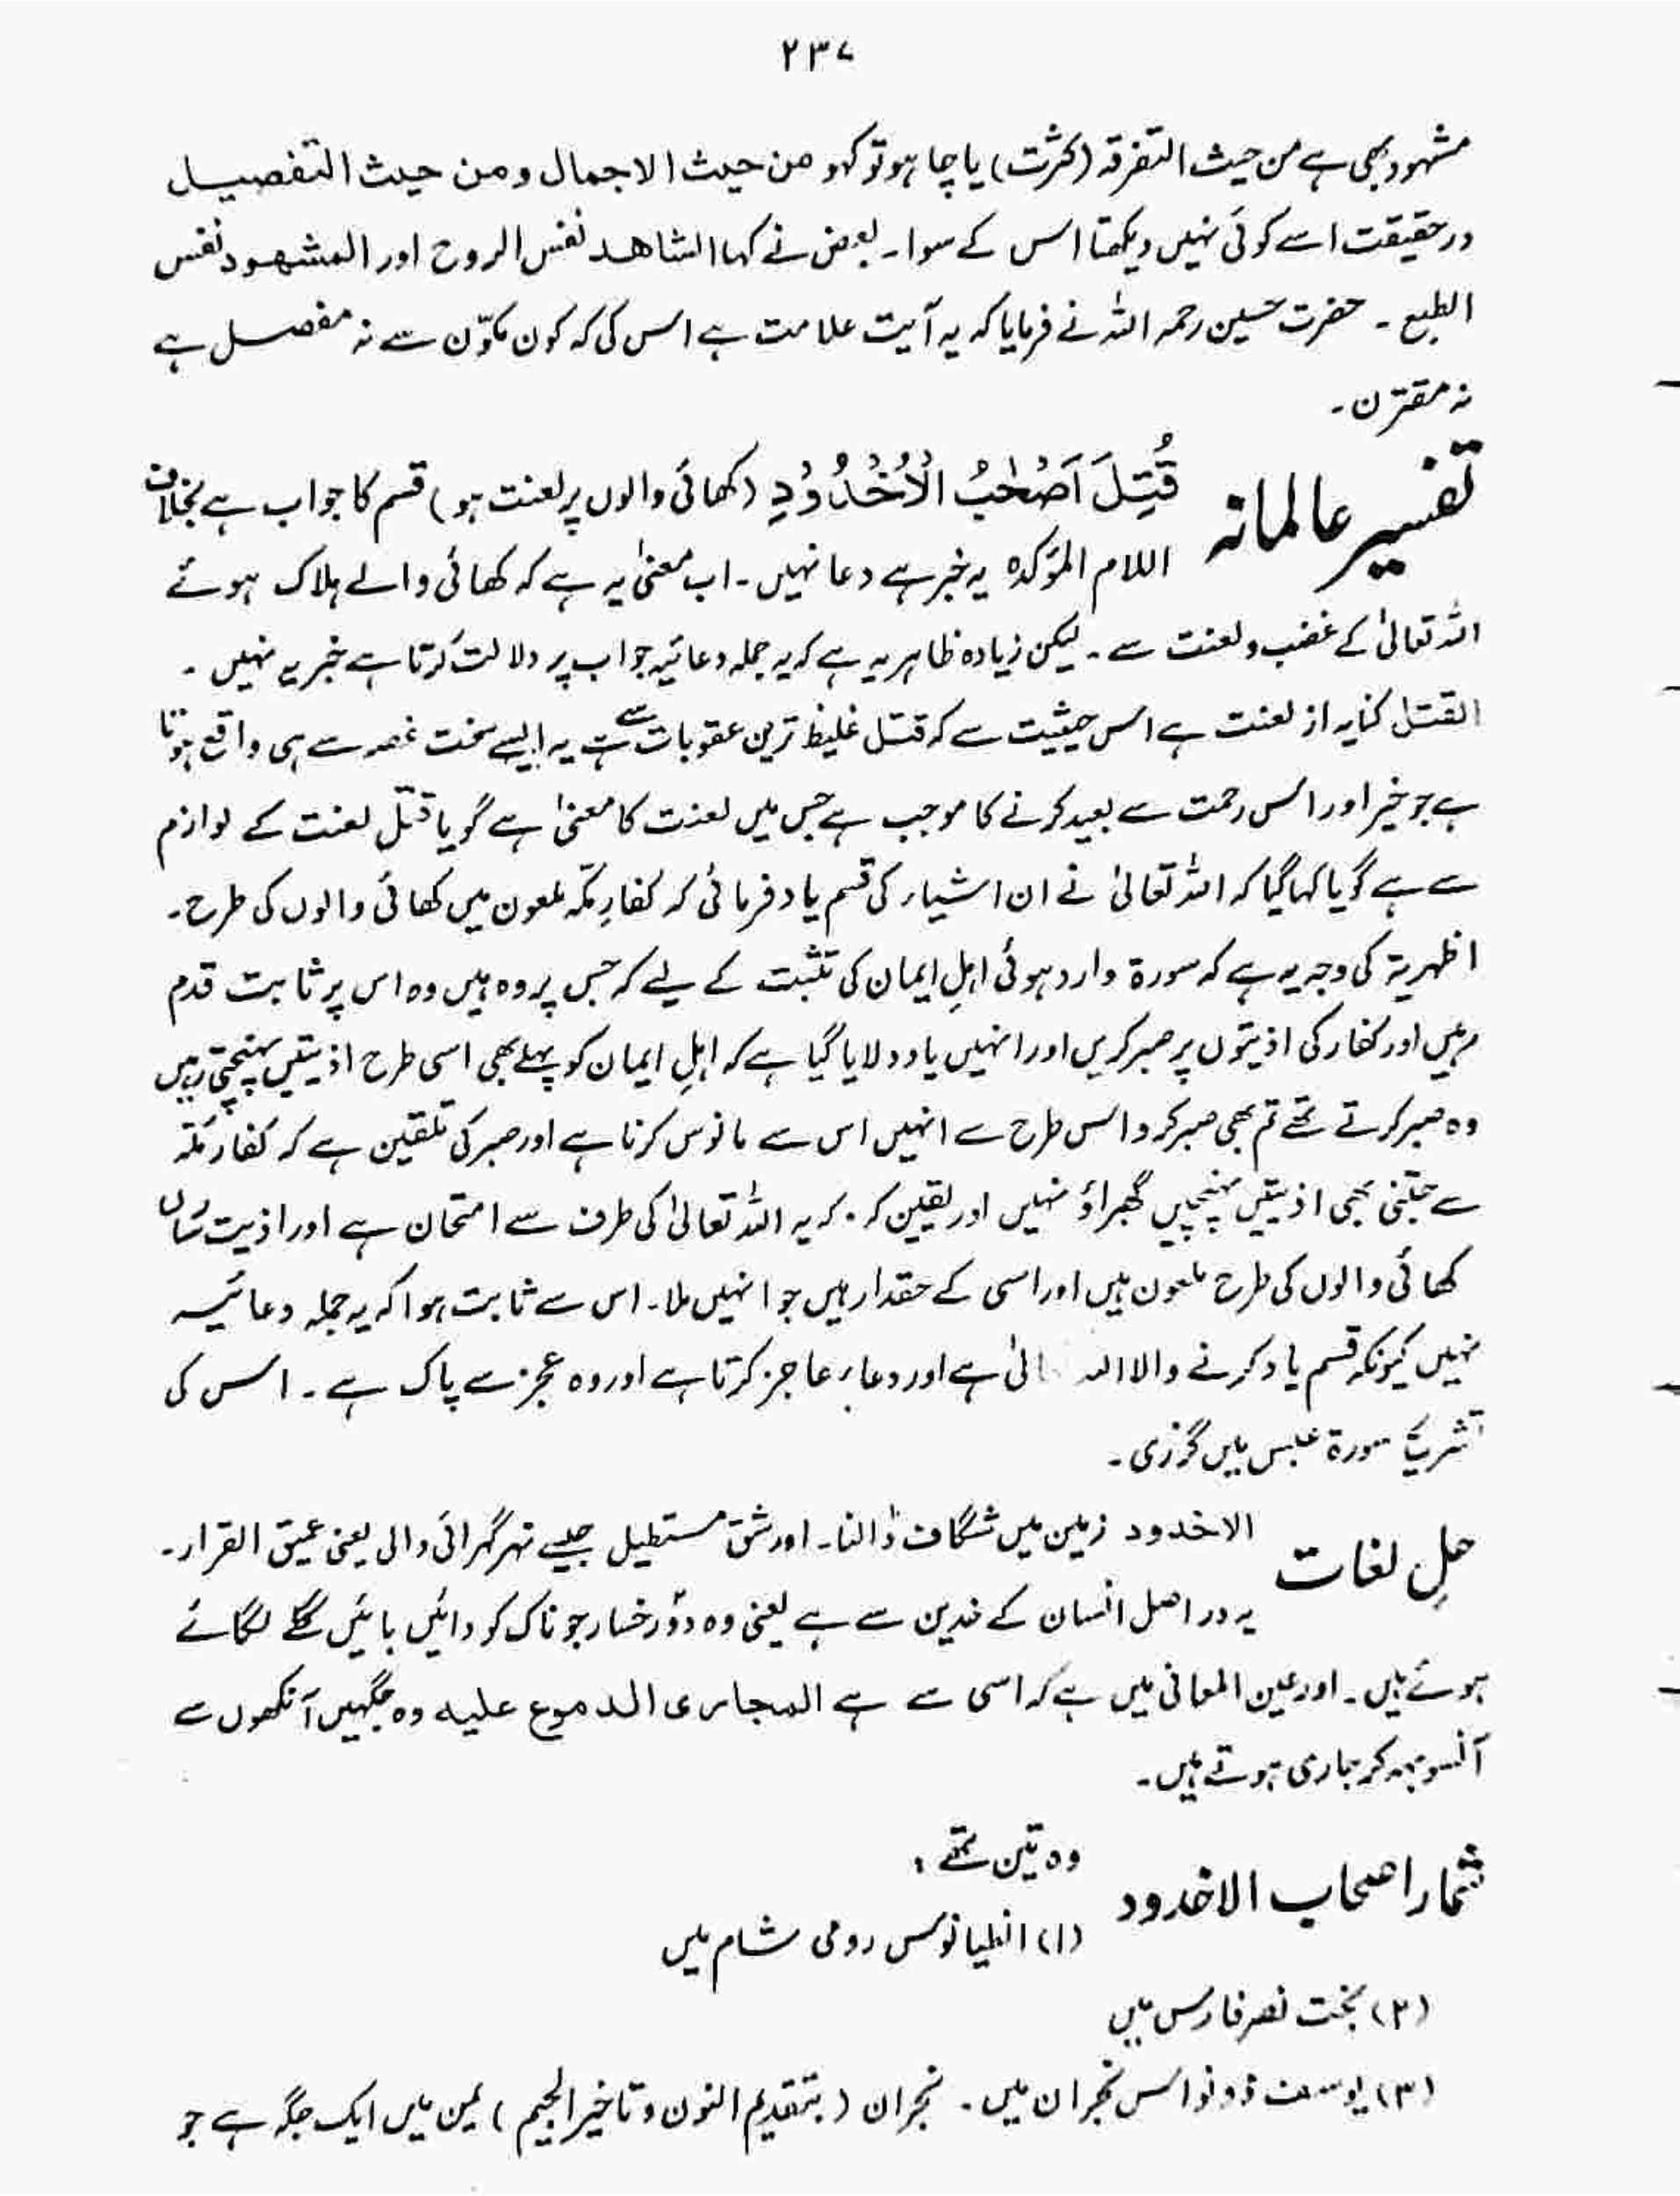 ۲۳۷
مشہود بھی ہے من حیث التفرقہ (کثرت) یا چاہو تو کہو من حیث الاجمال و من حیث التفصیل
درحقیقت اسے کوئی نہیں دیکھتا اس کے سوا۔ بعض نے کہا الشاھد نفس الروح اور المشھود نفس
الطبع ۔ حضرت حسین رحمہ اللہ نے فرمایا کہ یہ آیت علامت ہے اس کی کہ کون مکوّن سے نہ مفصل ہے
نہ مقترن ۔
تفسیر عالمانہ
قُتِلَ اَصْحٰبُ الْاُخْدُوْدِ (کھائی والوں پر لعنت ہو) قسم کا جواب ہے بخلاف
اللام المؤکدہ یہ خبر ہے دعا نہیں ۔ اب معنیٰ یہ ہے کہ کھائی والے ہلاک ہوئے
اللہ تعالیٰ کے غضب و لعنت سے ۔ لیکن زیادہ ظاہر یہ ہے کہ یہ جملہ دعائیہ جواب پر دلالت کرتا ہے خبریہ نہیں ۔
القتل کنایہ از لعنت ہے اس حیثیت سے کہ قتل غلیظ ترین عقوبات سے ہے یہ ایسے سخت غصہ سے ہی واقع ہوتا
ہے جو خیر اور اس رحمت سے بعید کرنے کا موجب ہے جس میں لعنت کا معنیٰ ہے گویا قتل لعنت کے لوازم
سے ہے گویا کہا گیا کہ اللہ تعالیٰ نے ان اشیاء کی قسم یاد فرمائی کہ کفارِ مکہ ملعون میں کھائی والوں کی طرح ۔
اظہریۃ کی وجہ یہ ہے کہ سورۃ وارد ہوئی اہلِ ایمان کی تثبت کے لیے کہ جس پر وہ ہیں وہ اس پر ثابت قدم
رہیں اور کفار کی اذیتوں پر صبر کریں اور انہیں یاد دلایا گیا ہے کہ اہلِ ایمان کو پہلے بھی اسی طرح اذیتیں پہنچتی رہیں
وہ صبر کرتے تھے تم بھی صبر کرو اس طرح سے انہیں اس سے مانوس کرنا ہے اور صبر کی تلقین ہے کہ کفار مکہ
سے جتنی بھی اذیتیں پہنچیں گھبراؤ نہیں اور یقین کر کہ یہ اللہ تعالیٰ کی طرف سے امتحان ہے اور اذیت رساں
کھائی والوں کی طرح ملعون ہیں اور اسی کے حقدار ہیں جو انہیں ملا ۔ اس سے ثابت ہوا کہ یہ جملہ دعائیہ
نہیں کیونکہ قسم یاد کرنے والا اللہ الیٰ ہے اور دعاء عاجز کرتا ہے اور وہ عجز سے پاک ہے ۔ اس کی
تشریح سورۃ عبس میں گزری ۔
حلِ لغات
الاخدود زمین میں شگاف ڈالنا ۔ اور شق مستطیل جیسے نہر گہرائی والی یعنی عمیق القرار ۔
یہ در اصل انسان کے خدین سے ہے یعنی وہ دو رخسار جو ناک کو دائیں بائیں گھگے لگائے
ہوئے ہیں ۔ اور عین المعانی میں ہے کہ اسی سے ہے المجاری الدموع علیہ وہ جگہیں آنکھوں سے
آنسو بہہ کر جاری ہوتے ہیں ۔
شمار اصحاب الاخدود
وہ تین تھے :
(۱) انطیانوس رومی شام میں
(۲) بخت نصر فارس میں
(۳) یوسف ذونواس نجران میں ۔ نجران (بتقدیم النون و تاخیر الجیم) یمن میں ایک جگہ ہے جو